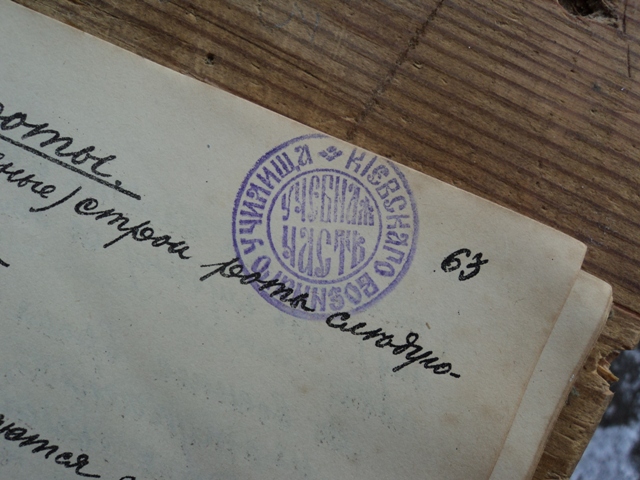 КІЕВСКАГО ВОЕННАГО УЧИЛИЩА
УЧЕБНАЯ
ЧАСТЬ
63
роты.
ные) строи роты следую-